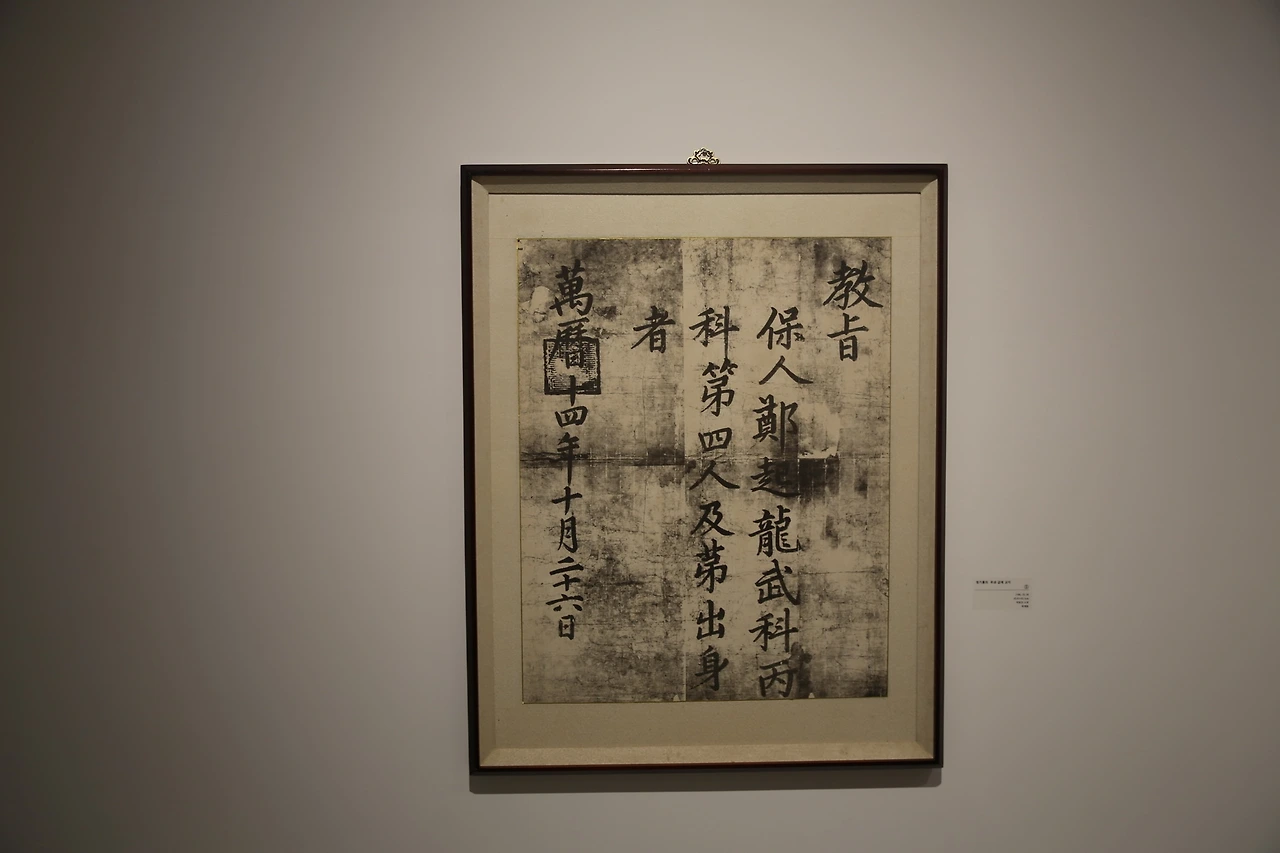 教旨
保人鄭起龍武科丙
科第四人及第出身
者
萬曆十四年十月二十六日